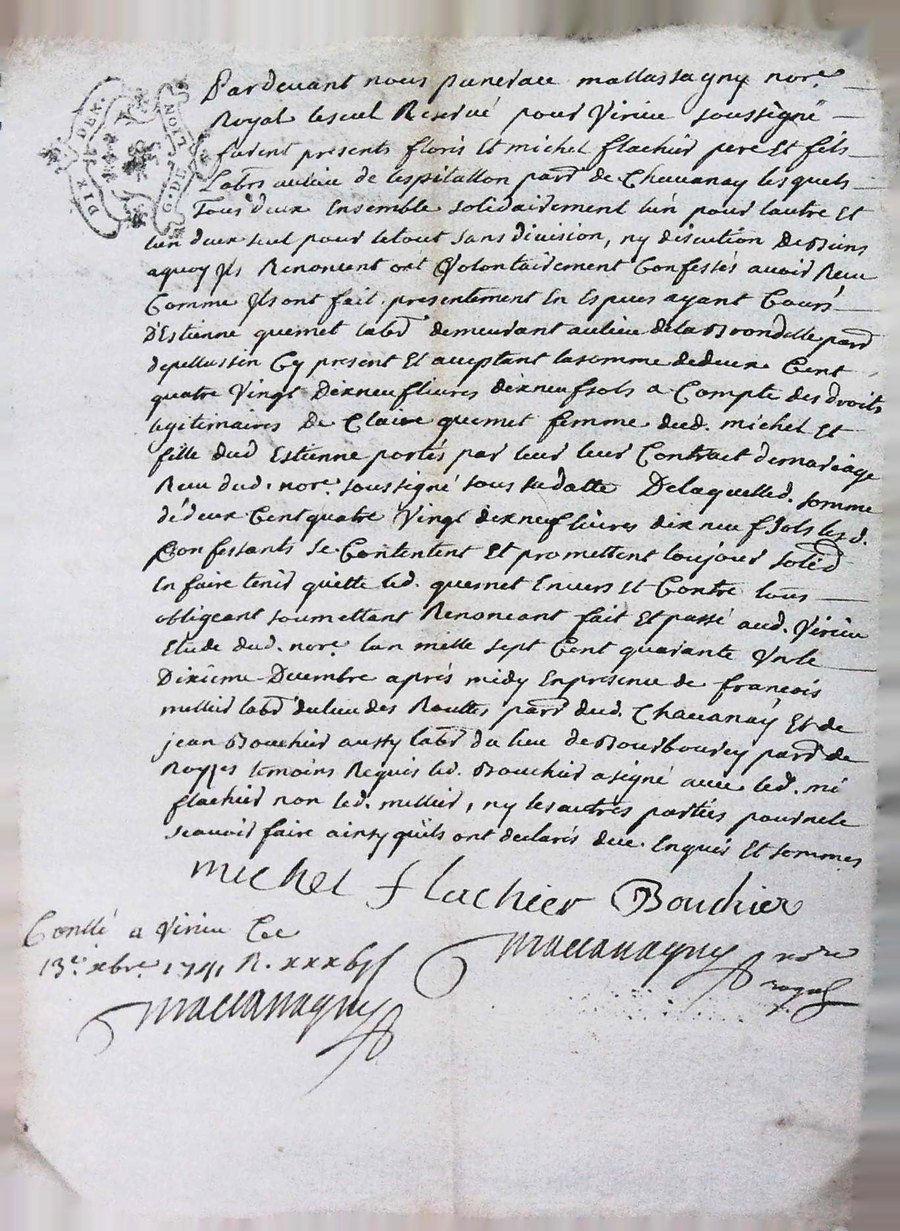 DIX DEN.
G. DE LION
Pardevant nous punerace mallassagny nore
Royal le seul Reservé pour Virieu soussigné
furent presents floris Et michel flachier pere Et fils
Labrs au lieu de lespitallon parr de Chavanay lesquels
Tous deux Ensemble solidairement lun pour lautre Et
lun deux seul pour le tout sans division, ny discution de biens
aquoy jls Renoncent ont Volontairement Confessés avoir Receu
Comme Jls ont fait presentement En Espuces ayant Cours
D'Estienne quemet labr demeurant au lieu de la Brondelle parr
de pellussin Cy present Et acceptant la somme de deux Cent
quatre Vingt Dixneuf livres dixneuf sols a Compte des droits
legitimaires De Claire quemet femme dud. michel Et
fille dud Estienne portés par leur leur Contract de mariage
Receu dud. nore soussigné sous sa datte De laquelled. somme
de deux Cent quatre Vingt dixneuf livres dixneuf sols lesd.
Confessants se Contentent Et promettent toujour solid
En faire tenir quitte led. quesnet Envers Et Contre tous
obligeant soumettant Renoncant fait Et passé aud. Virieu
Etude dud. nore lan mille sept Cent quarante Un le
Dixième Decembre après midy En presence de francois
millier labr du lieu des Routtes parr dud. Chavanay Et de
jean Bouchier aussy labr du lieu de Bourbourey parr de
Roysses temoins Requis led. Bouchier a signé avec led. mi
flachier non led. millier, ny les autres parties pour ne le
scavoir faire ainsy quils ont declarés duc. Enquis Et sommes
michel flachier Bouchier
Conllé a Virieu Ce
13e xbre 1741 R.
nore
royal